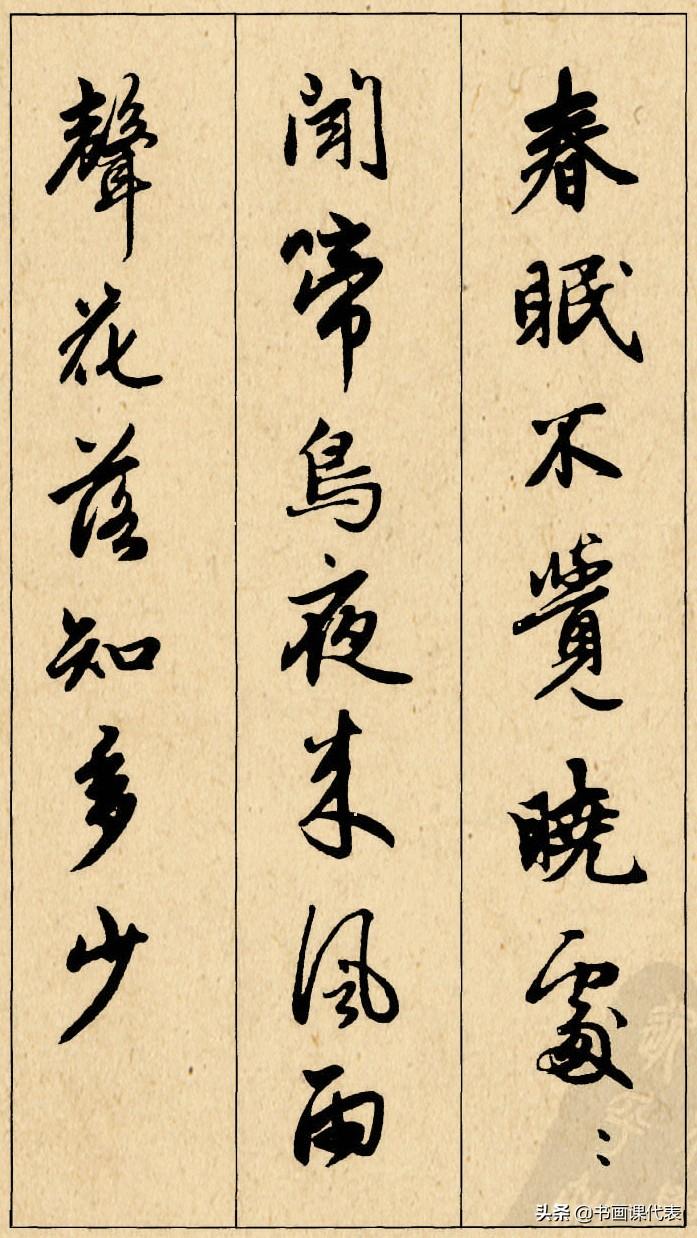 春眠不覺曉處〻
聞啼鳥夜来風雨
聲花落知多少
头条 @书画课代表